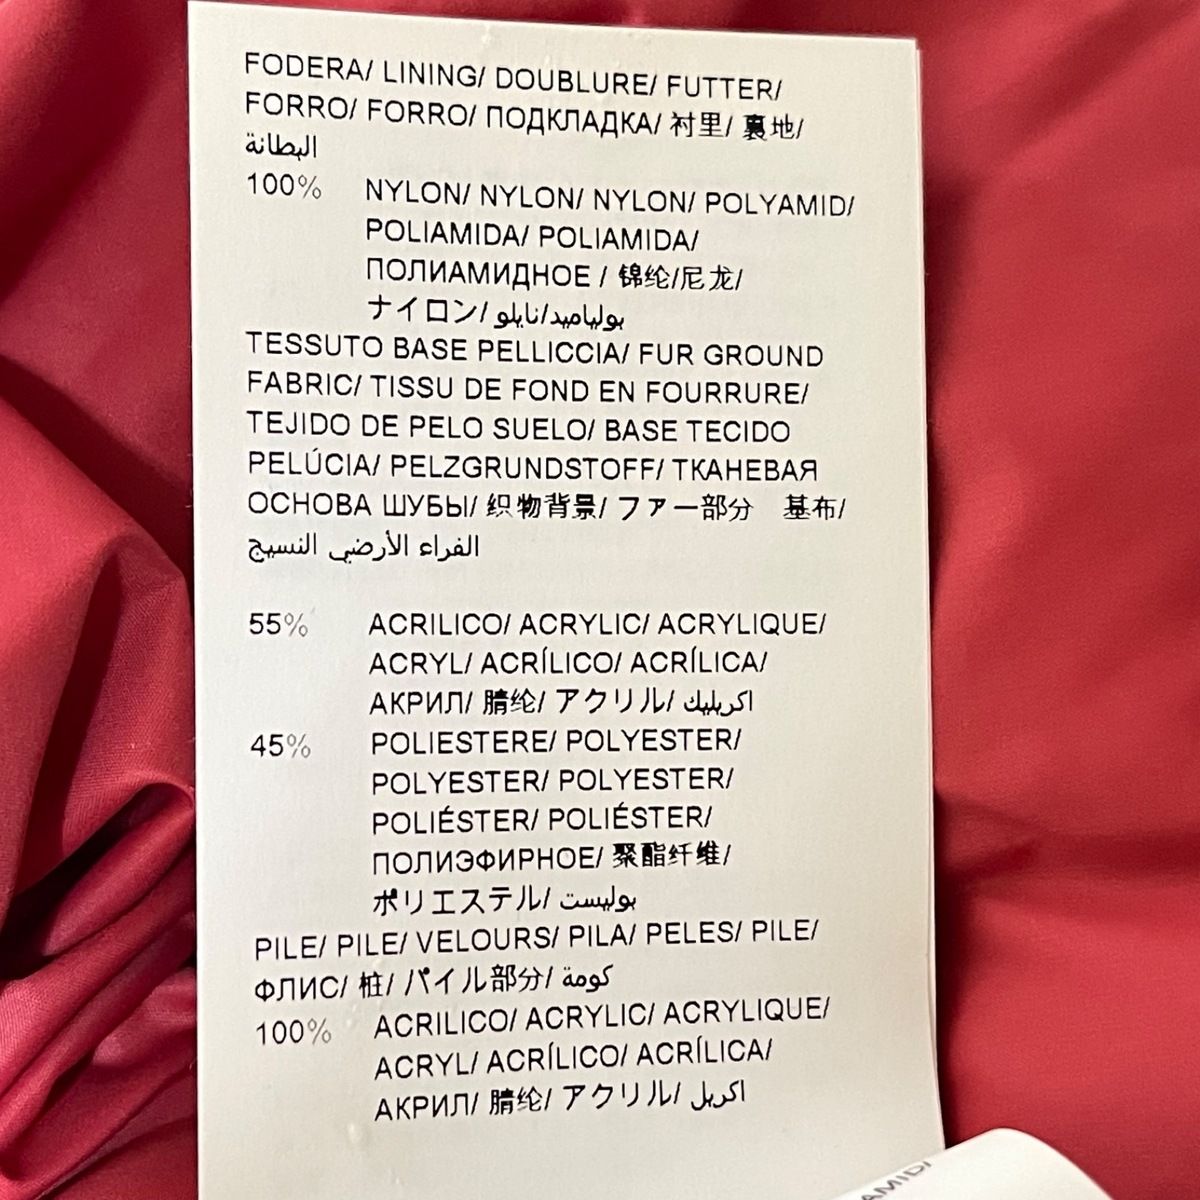 FODERA/ LINING/ DOUBLURE/ FUTTER/
FORRO/ FORRO/ ПОДКЛАДКА/ 衬里/ 裏地/
البطانة
100% NYLON/ NYLON/ NYLON/ POLYAMID/
POLIAMIDA/ POLIAMIDA/
ПОЛИАМИДНОЕ / 锦纶/尼龙/
ナイロン/ بولياميد/نايلو
TESSUTO BASE PELLICCIA/ FUR GROUND
FABRIC/ TISSU DE FOND EN FOURRURE/
TEJIDO DE PELO SUELO/ BASE TECIDO
PELÚCIA/ PELZGRUNDSTOFF/ ТКАНЕВАЯ
ОСНОВА ШУБЫ/ 织物背景/ ファー部分　基布/
الفراء الأرضي النسيج
55% ACRILICO/ ACRYLIC/ ACRYLIQUE/
ACRYL/ ACRÍLICO/ ACRÍLICA/
АКРИЛ/ 腈纶/ アクリル/ اكريليك
45% POLIESTERE/ POLYESTER/
POLYESTER/ POLYESTER/
POLIÉSTER/ POLIÉSTER/
ПОЛИЭФИРНОЕ/ 聚酯纤维/
ポリエステル/ بوليست
PILE/ PILE/ VELOURS/ PILA/ PELES/ PILE/
ФЛИС/ 桩/ パイル部分/ كومة
100% ACRILICO/ ACRYLIC/ ACRYLIQUE/
ACRYL/ ACRÍLICO/ ACRÍLICA/
АКРИЛ/ 腈纶/ アクリル/ اكريل
AMID/